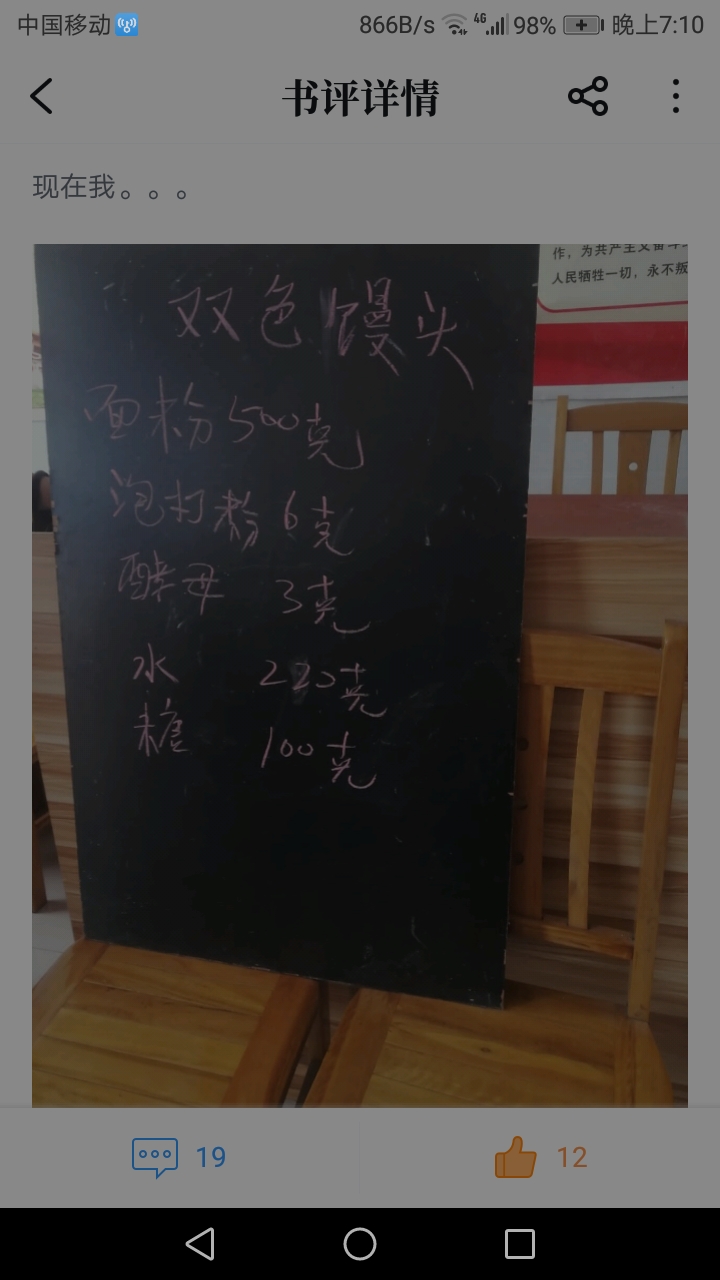 中国移动 866B/s 4G 98% 晚上7:10
书评详情
现在我。。。
作，为共产主义奋斗
人民牺牲一切，永不叛
双色馒头
面粉500克
泡打粉 6克
酵母 3克
水 220克
糖 100克
19 12